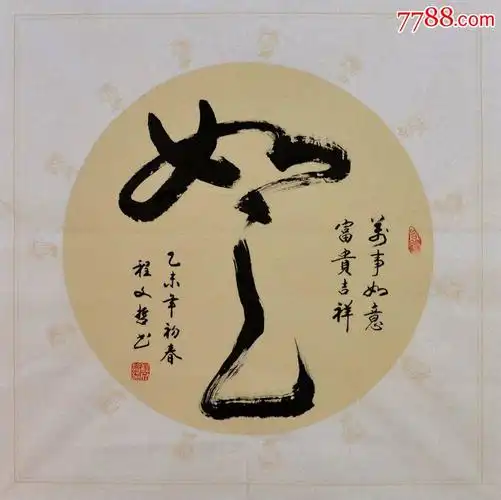 7788.com
如意
萬事如意
富貴吉祥
乙未年初春
程文哲书